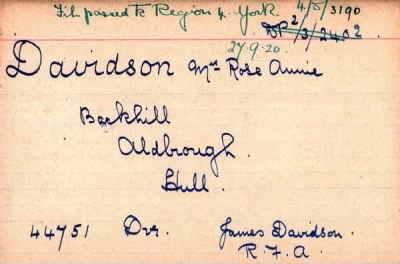 File passed to Region 4. York. 4/D/3190
DP 2/3/2402
27.9.20.
Davidson Mrs Rose Annie
Backhill
Aldbrough.
Hull.
44751 Dvr. James Davidson.
R.F.A.